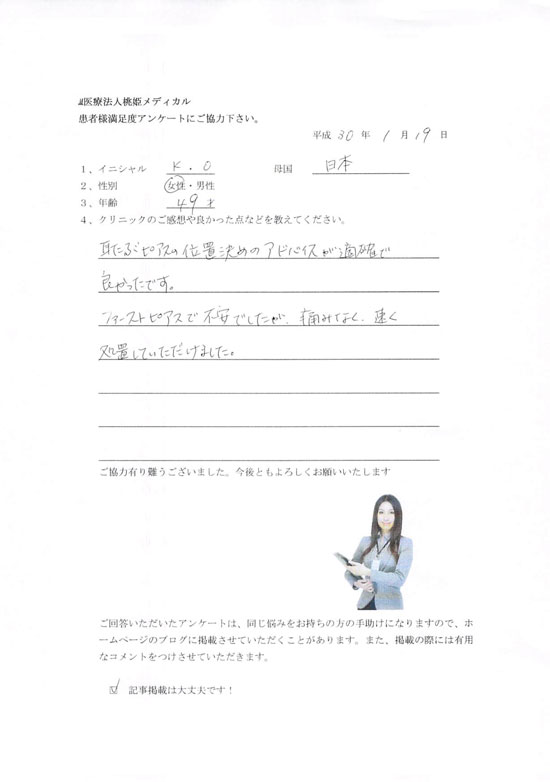 医療法人桃姫メディカル
患者様満足度アンケートにご協力下さい。
平成 30 年 1 月 19 日
1、イニシャル K.O 母国 日本
2、性別 女性・男性
3、年齢 49才
4、クリニックのご感想や良かった点などを教えてください。
耳たぶピアスの位置決めのアドバイスが適確で
良かったです。
ファーストピアスで不安でしたが、痛みなく、速く
処置していただけました。
ご協力有り難うございました。今後ともよろしくお願いいたします
ご回答いただいたアンケートは、同じ悩みをお持ちの方の手助けになりますので、ホ
ームページのブログに掲載させていただくことがあります。また、掲載の際には有用
なコメントをつけさせていただきます。
☑ 記事掲載は大丈夫です！